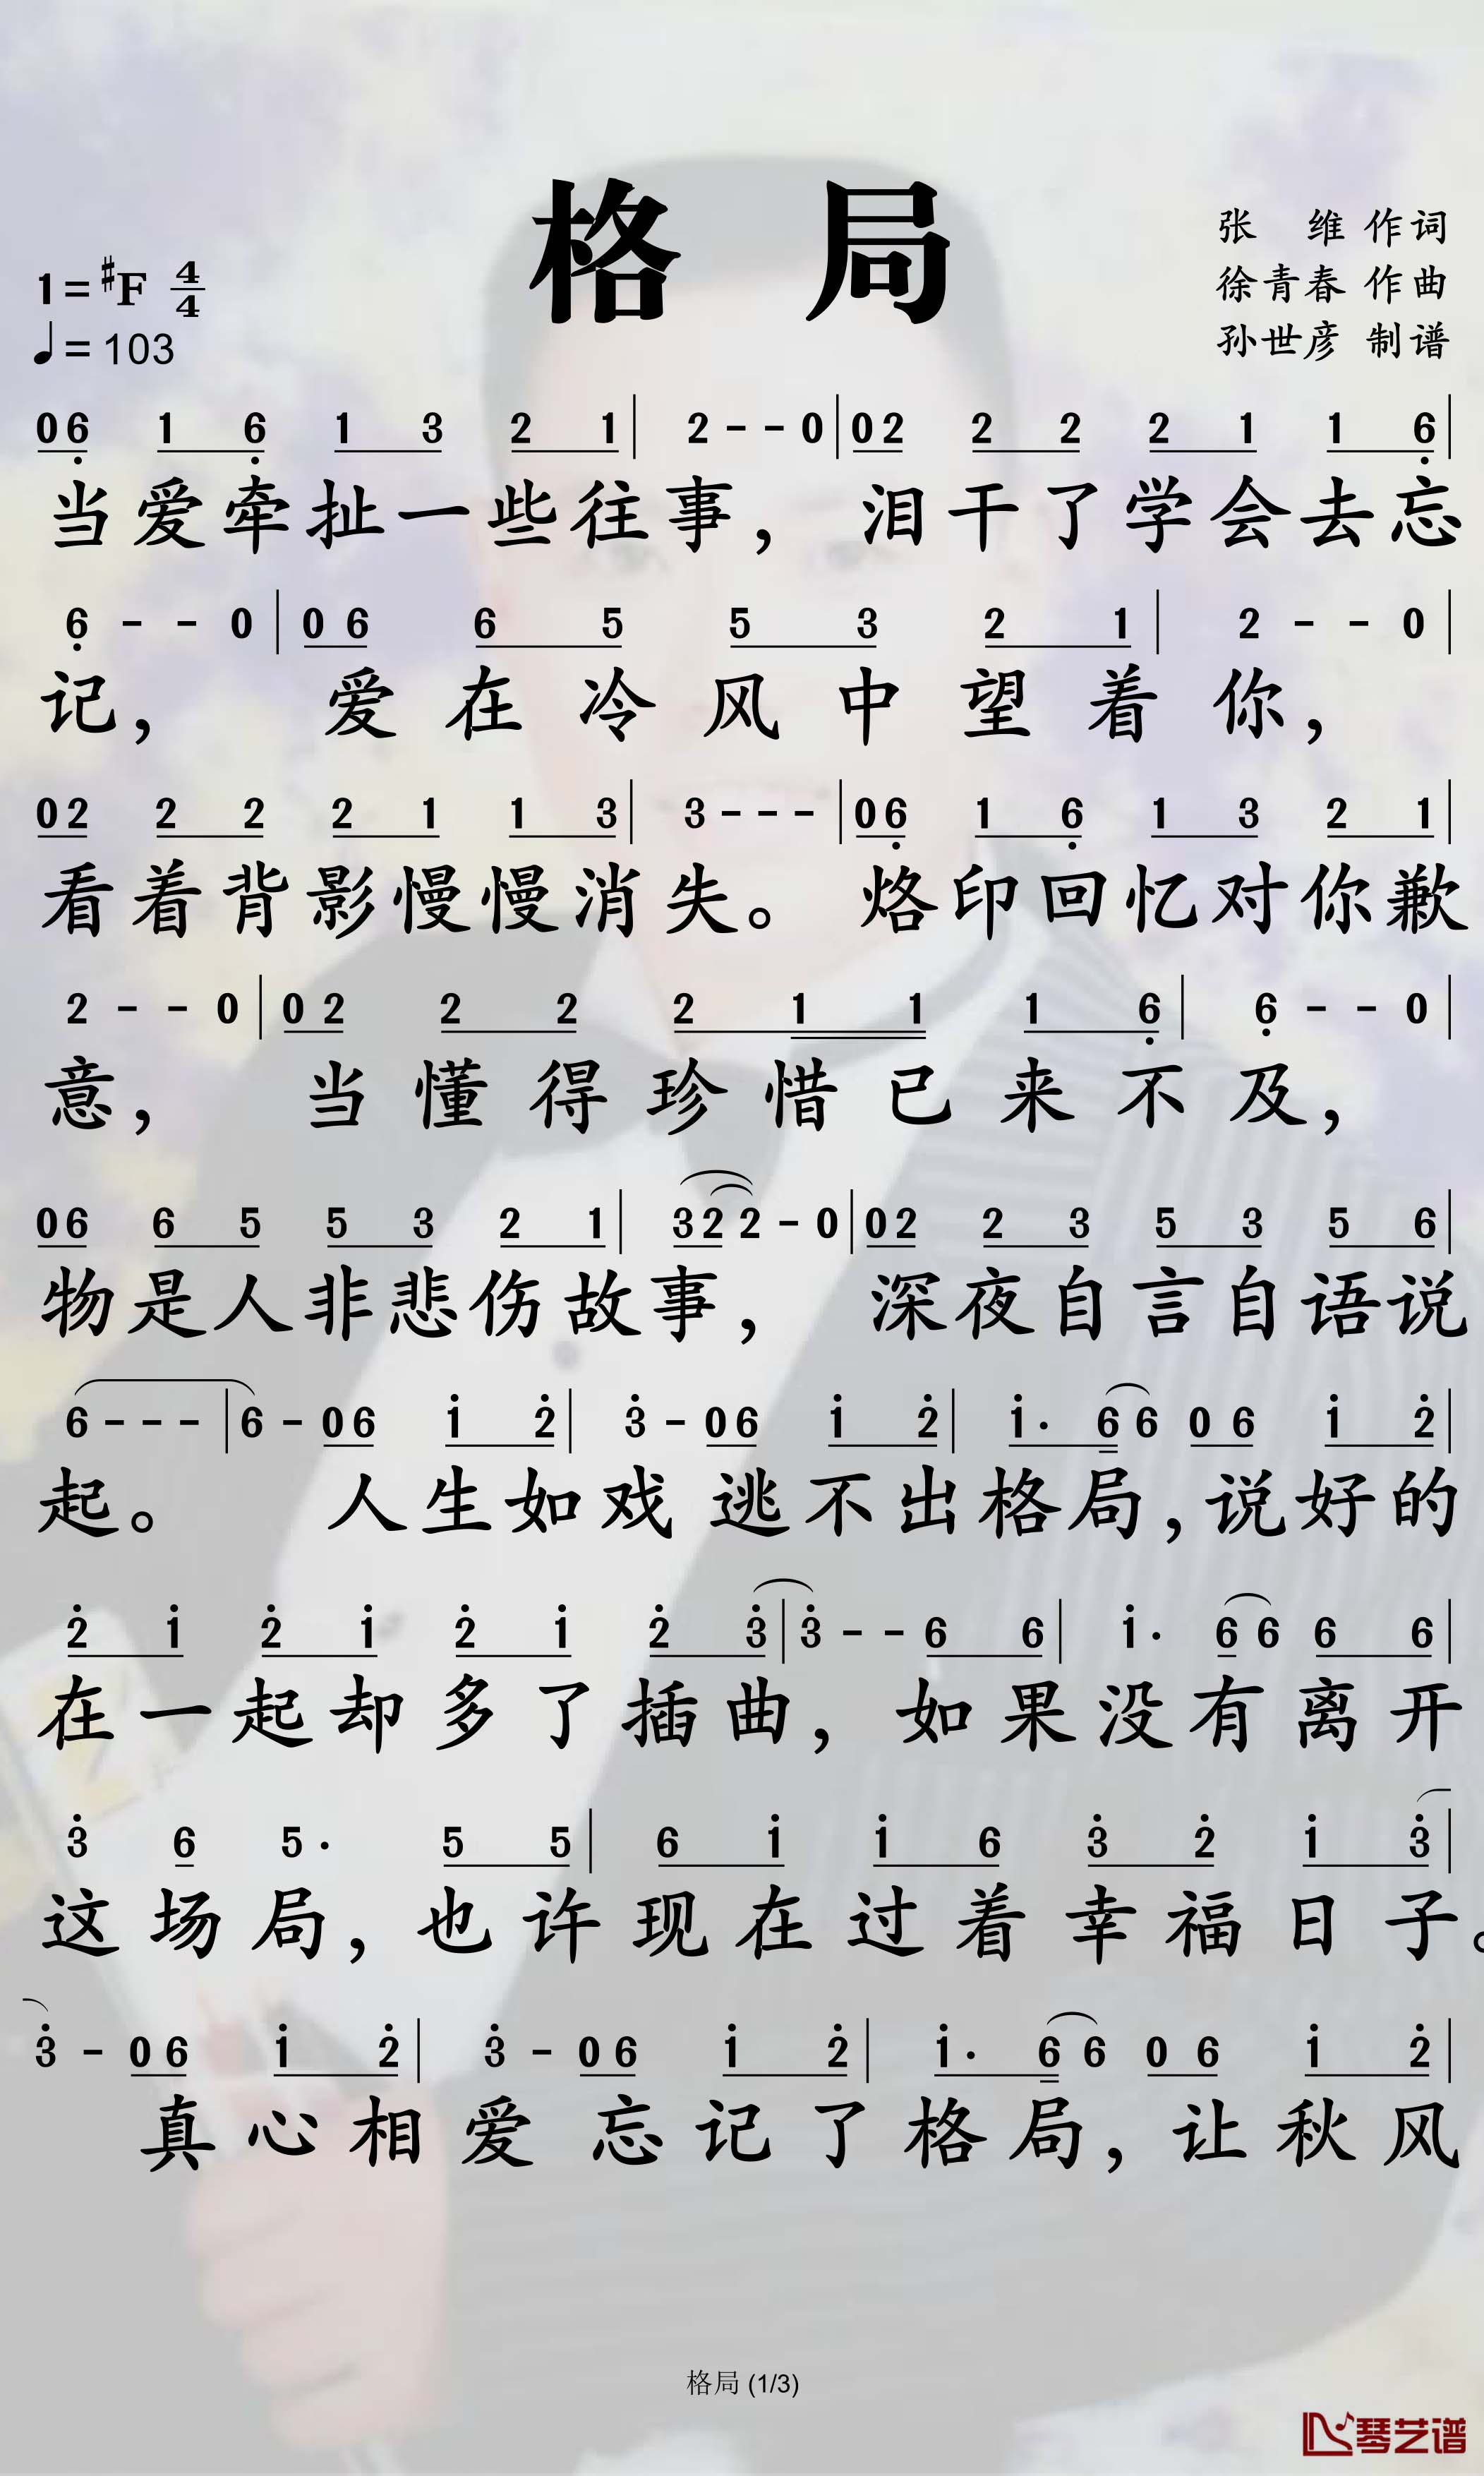 格 局
张 维 作词
徐青春 作曲
孙世彦 制谱
1=♯F 4/4
♩=103
06̣ 1 6̣ 1 3 2 1 | 2 - - 0 | 02 2 2 2 1 1 6̣ |
当爱牵扯一些往事，泪干了学会去忘
6̣ - - 0 | 0 6 6 5 5 3 2 1 | 2 - - 0 |
记， 爱在冷风中望着你，
02 2 2 2 1 1 3 | 3 - - - | 06̣ 1 6̣ 1 3 2 1 |
看着背影慢慢消失。烙印回忆对你歉
2 - - 0 | 0 2 2 2 2 1 1 1 6̣ | 6̣ - - 0 |
意， 当懂得珍惜已来不及，
06 6 5 5 3 2 1 | 32 2 - 0 | 02 2 3 5 3 5 6 |
物是人非悲伤故事， 深夜自言自语说
6 - - - | 6 - 06 1̇ 2̇ | 3̇ - 06 1̇ 2̇ | 1̇· 6 6 0 6 1̇ 2̇ |
起。 人生如戏 逃不出格局，说好的
2̇ 1̇ 2̇ 1̇ 2̇ 1̇ 2̇ 3̇ | 3̇ - - 6 6 | 1̇· 6 6 6 6 |
在一起却多了插曲，如果没有离开
3̇ 6 5· 5 5 | 6 1̇ 1̇ 6 3̇ 2̇ 1̇ 3̇ |
这场局，也许现在过着幸福日子。
3̇ - 0 6 1̇ 2̇ | 3̇ - 0 6 1̇ 2̇ | 1̇· 6 6 0 6 1̇ 2̇ |
真心相爱 忘记了格局，让秋风
格局 (1/3)
琴艺谱